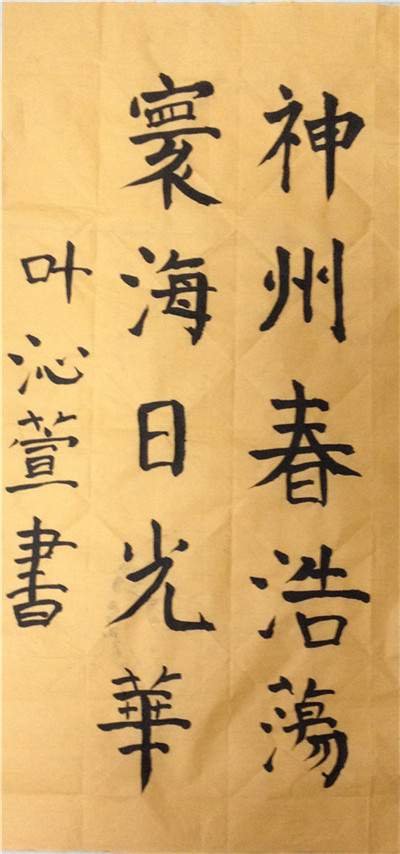 神州春浩蕩
寰海日光華
叶沁萱書